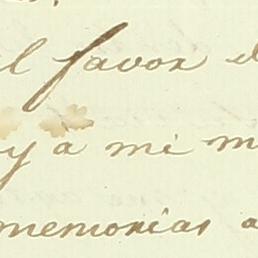 el favor d
y a mi m
memorias a